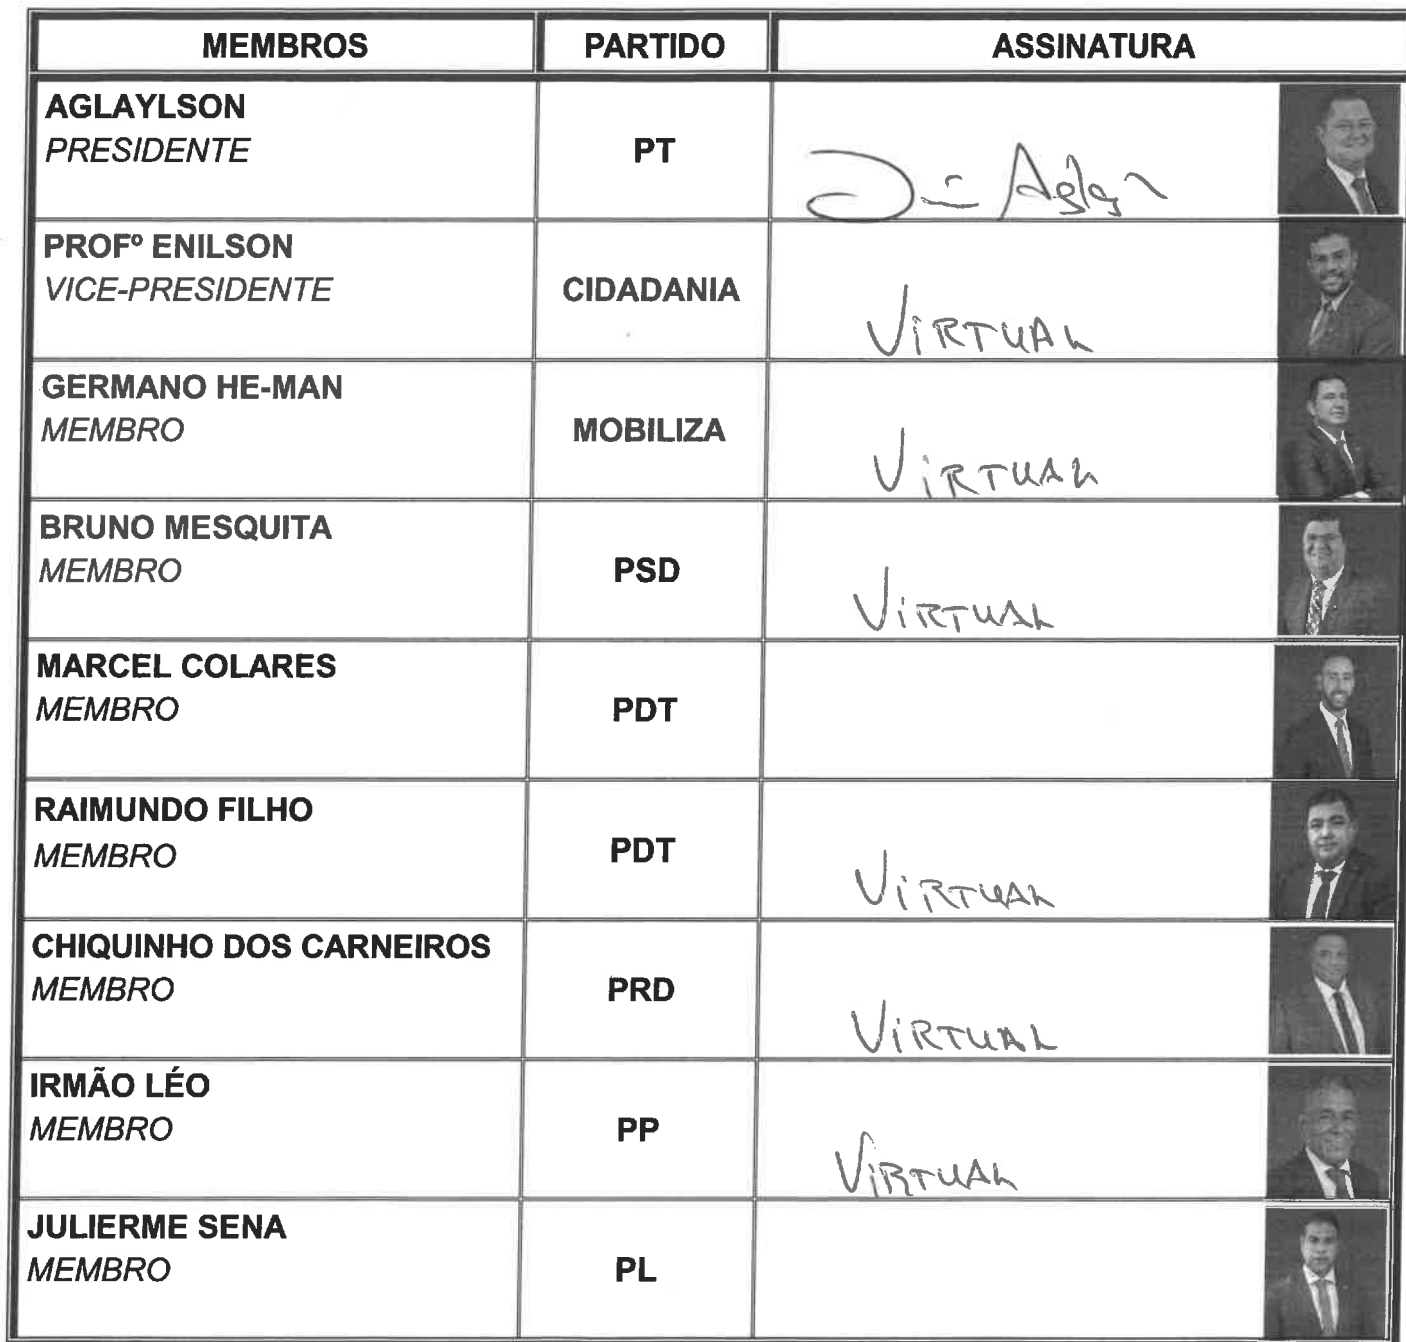 MEMBROS PARTIDO ASSINATURA
AGLAYLSON
PRESIDENTE PT
PROFº ENILSON
VICE-PRESIDENTE CIDADANIA
VIRTUAL
GERMANO HE-MAN
MEMBRO MOBILIZA
VIRTUAL
BRUNO MESQUITA
MEMBRO PSD
VIRTUAL
MARCEL COLARES
MEMBRO PDT
RAIMUNDO FILHO
MEMBRO PDT
VIRTUAL
CHIQUINHO DOS CARNEIROS
MEMBRO PRD
VIRTUAL
IRMÃO LÉO
MEMBRO PP
VIRTUAL
JULIERME SENA
MEMBRO PL